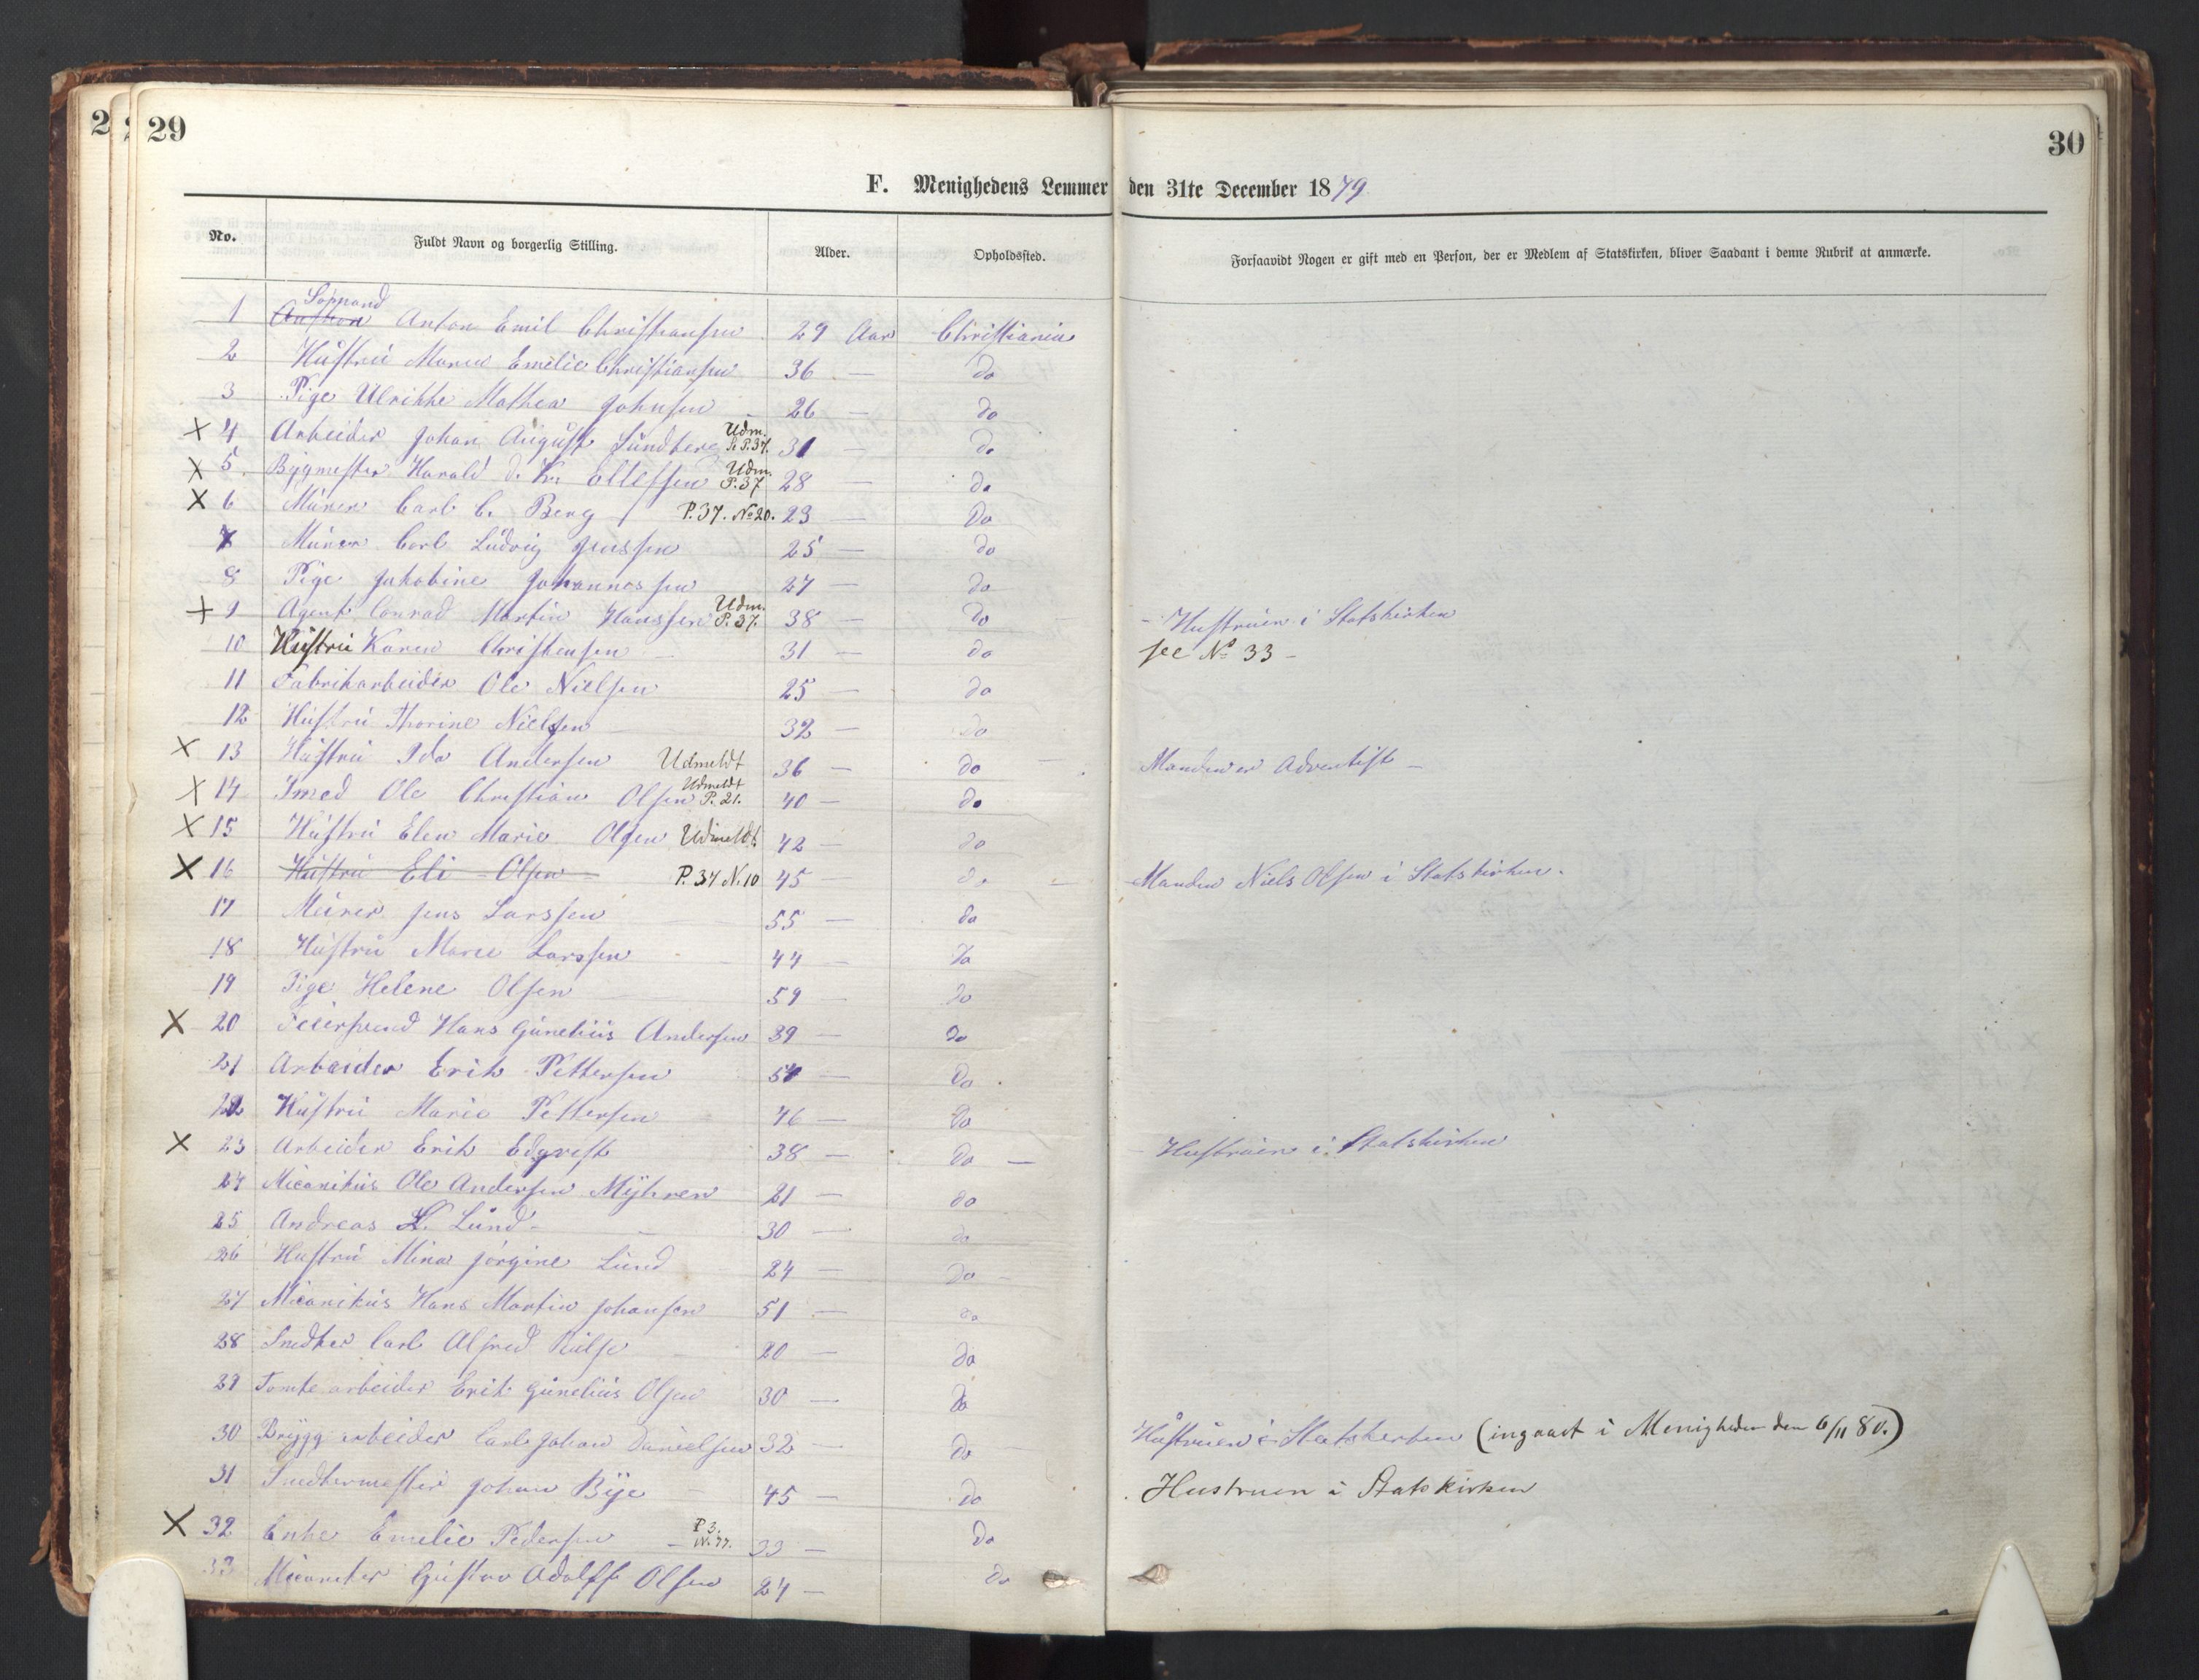 29
30
F. Menighedens Lemmer den 31te December 1879
No.
Fuldt Navn og borgerlig Stilling.
Alder.
Opholdssted.
Forsaavidt Nogen er gift med en Person, der er Medlem af Statskirken, bliver Saadant i denne Rubrik at anmærke.
1 Anton Emil Christiansen 29 Aar Christiania
2 Hustru Maren Emelie Christiansen 36 — do
3 Pige Ulrikke Mathea Johnsen 26 — do
X 4 Arbeider Johan August Lundberg Udm. P. 37. 31 do
X 5. Bygmester Harald Ellefsen Udm. P. 37 28 — do
X 6 Murer Carl C. Berg P. 37. No 20. 23 — Do
7 Murer Carl Ludvig Jenssen 25 — do
8 Pige Jakobine Johannessen 27 — do
X 9 Agent Conrad Martin Hanssen Udm. P. 37. 38 — do - Hustruen i Statskirken
10 Hustru Karen Christensen 31 — do see No 33 -
11 Fabrikarbeider Ole Nielsen 25 — do
12 Hustru Thorine Nielsen 32 — do
X 13 Hustru Ida Andersen Udmeldt 36 — do Manden er Adventist -
X 14 Smed Ole Christian Olsen Udmeldt P. 21. 40 — do
X 15 Hustru Elen Marie Olsen Udmeldt 42 — do
X 16 Hustru Eli Olsen P. 37 N. 10 45 do Manden Niels Olsen i Statskirken.
17 Murer Jens Larssen 55 — do
18 Hustru Maren Larssen 44 — do
19 Pige Helene Olsen 59 — do
X 20 Hans Gunelius Andersen 39 — do
21 Arbeider Erik Pettersen — Do
22 Hustru Marie Pettersen 46 — do
X 23 Arbeider Erik Edqvist 38 — Do — Hustruen i Statskirken
24 Micanikus Ole Andersen Myhren 21 — do
25 Andreas Lund 30 — do
26 Hustru Mina Jørgine Lund 24 — do
27 Micanikus Hans Martin Johansen 51 — do
28 Snedker Carl Alfred 20 — do
29 Tomtearbeider Erik Gunelius Olsen 30 — do
30 Bryggarbeider Carl Johan Danielsen 32 — do Hustruen i Statskirken (ingaaet i Menigheden den 6/11 80.)
31 Snedkermester Johan Bye 45 — do Hustruen i Statskirken
X 32 Enke Emelie Pedersen P 3. N. 77. 33 — Do
33 Micaniker Gustav Adolff Olsen 24 — do